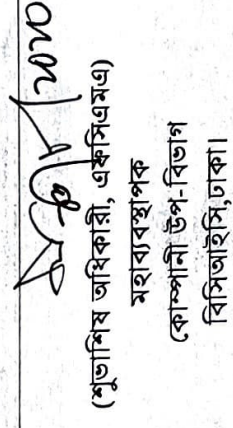 (শুভাশিষ অধিকারী, এফসিএমএ)
মহাব্যবস্থাপক
কোম্পানী উপ-বিভাগ
বিসিআইসি,ঢাকা।